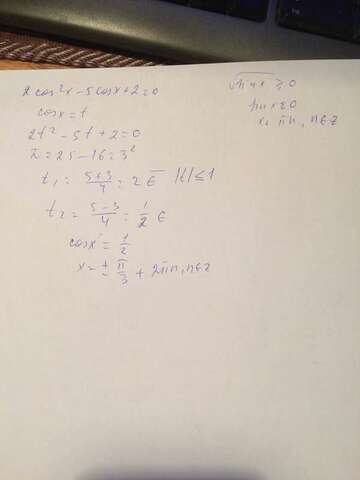 2cos²x-5cosx+2=0
cosx=t
2t²-5t+2=0
D=25-16=3²
t₁=\frac{5+3}{4}=2 ∉ |t|≤1
t₂=\frac{5-3}{4}=\frac{1}{2} ∈
cosx=\frac{1}{2}
x=±\frac{π}{3}+2πn, n∈z
\sqrt{sinx}≥0
sinx≥0
x=πn, n∈z